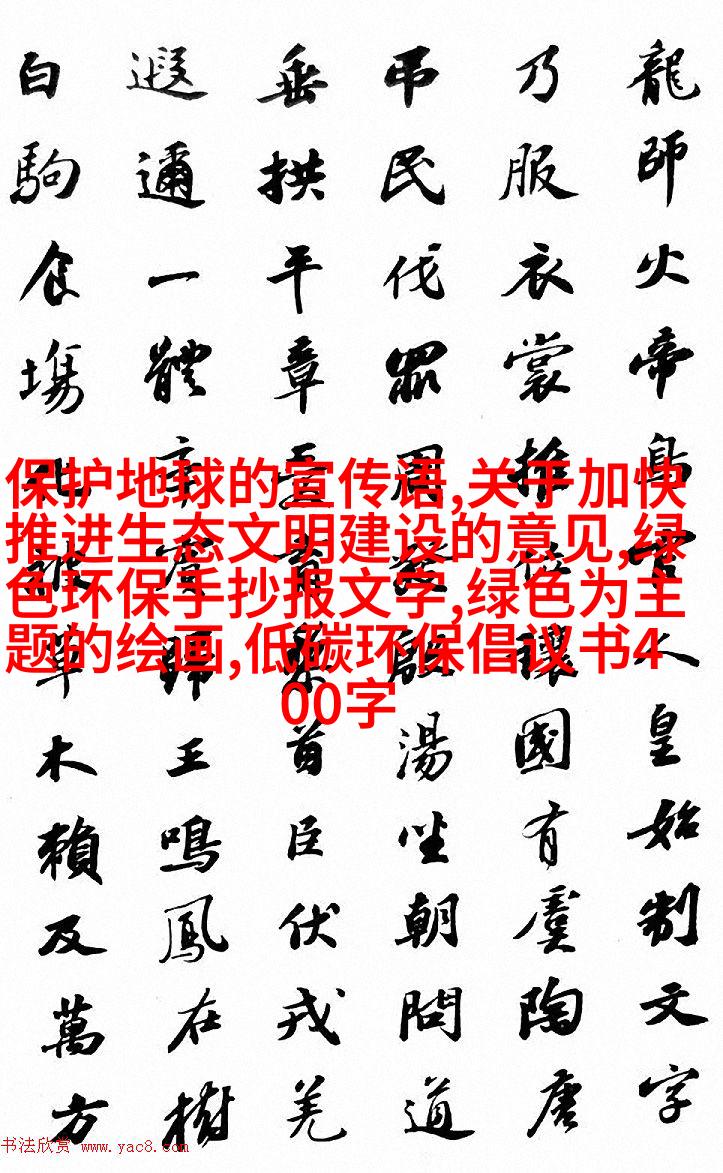 龍師火帝鳥官人皇始制文字
乃服衣裳推位讓國有虞陶唐
吊民伐罪周發殷湯坐朝問道
垂拱平章愛育黎首臣伏戎羌
遐邇一體率賓歸王鳴鳳在樹
白駒食場化被草木賴及萬方
保护地球的宣传语,关于加快
推进生态文明建设的意见,绿
色环保手抄报文字,绿色为主
题的绘画,低碳环保倡议书4
00字
书法欣赏 www.yac8.com